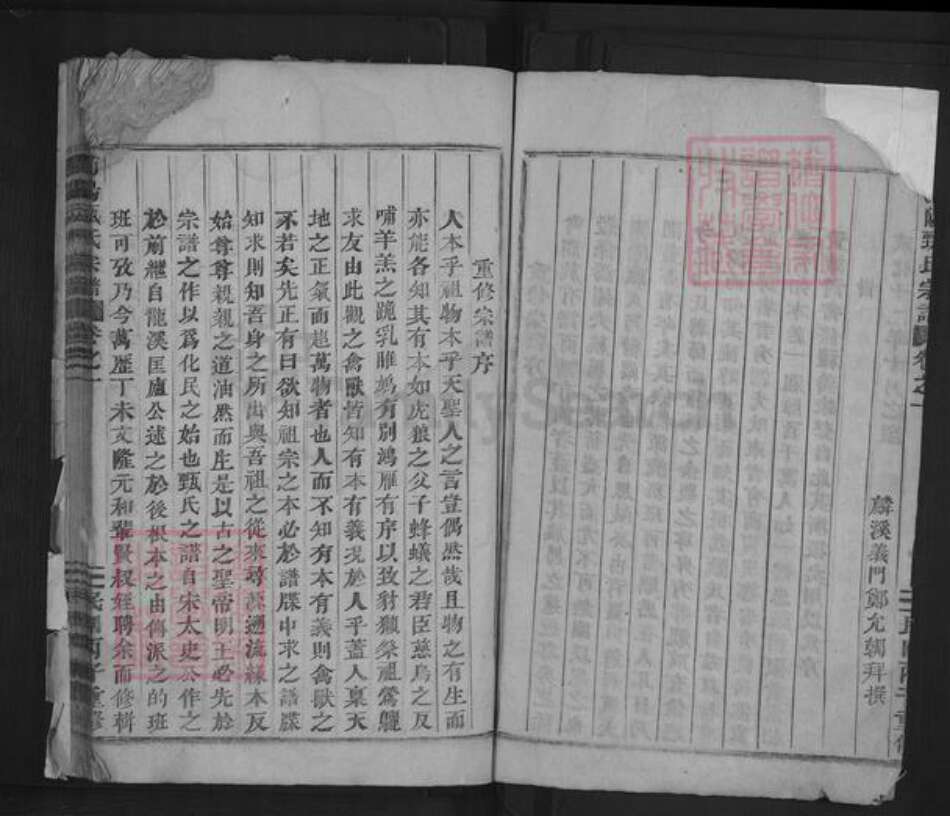 麟溪義門鄭允朝拜撰
甄氏宗譜 卷之一
重修宗譜序
人本乎祖物本乎天聖人之言豈偶然哉且物之有生而
亦能各知其有本如虎狼之父子蜂蟻之君臣慈烏之反
哺羊羔之跪乳雎鳩有別鴻雁有序以致豺獺祭祖鶯鸝
求友由此觀之禽獸皆知有本有義況於人乎蓋人稟天
地之正氣而超萬物者也人而不知有本有義則禽獸之
不若矣先正有曰欲知祖宗之本必於譜牒中求之譜牒
知求則知吾身之所出與吾祖之從來尋源遡流緣本反
始尊尊親親之道油然而生是以古之聖帝明王必先於
宗譜之作以爲化民之始也甄氏之譜自宋太史公作之
於前繼自龍溪匡廬公述之於後根本之由傳派之的班
班可攷乃今萬歷丁未文隆元和輩賢叔姪聘余而修輯
氏宗譜 卷之一 民國丙子重修